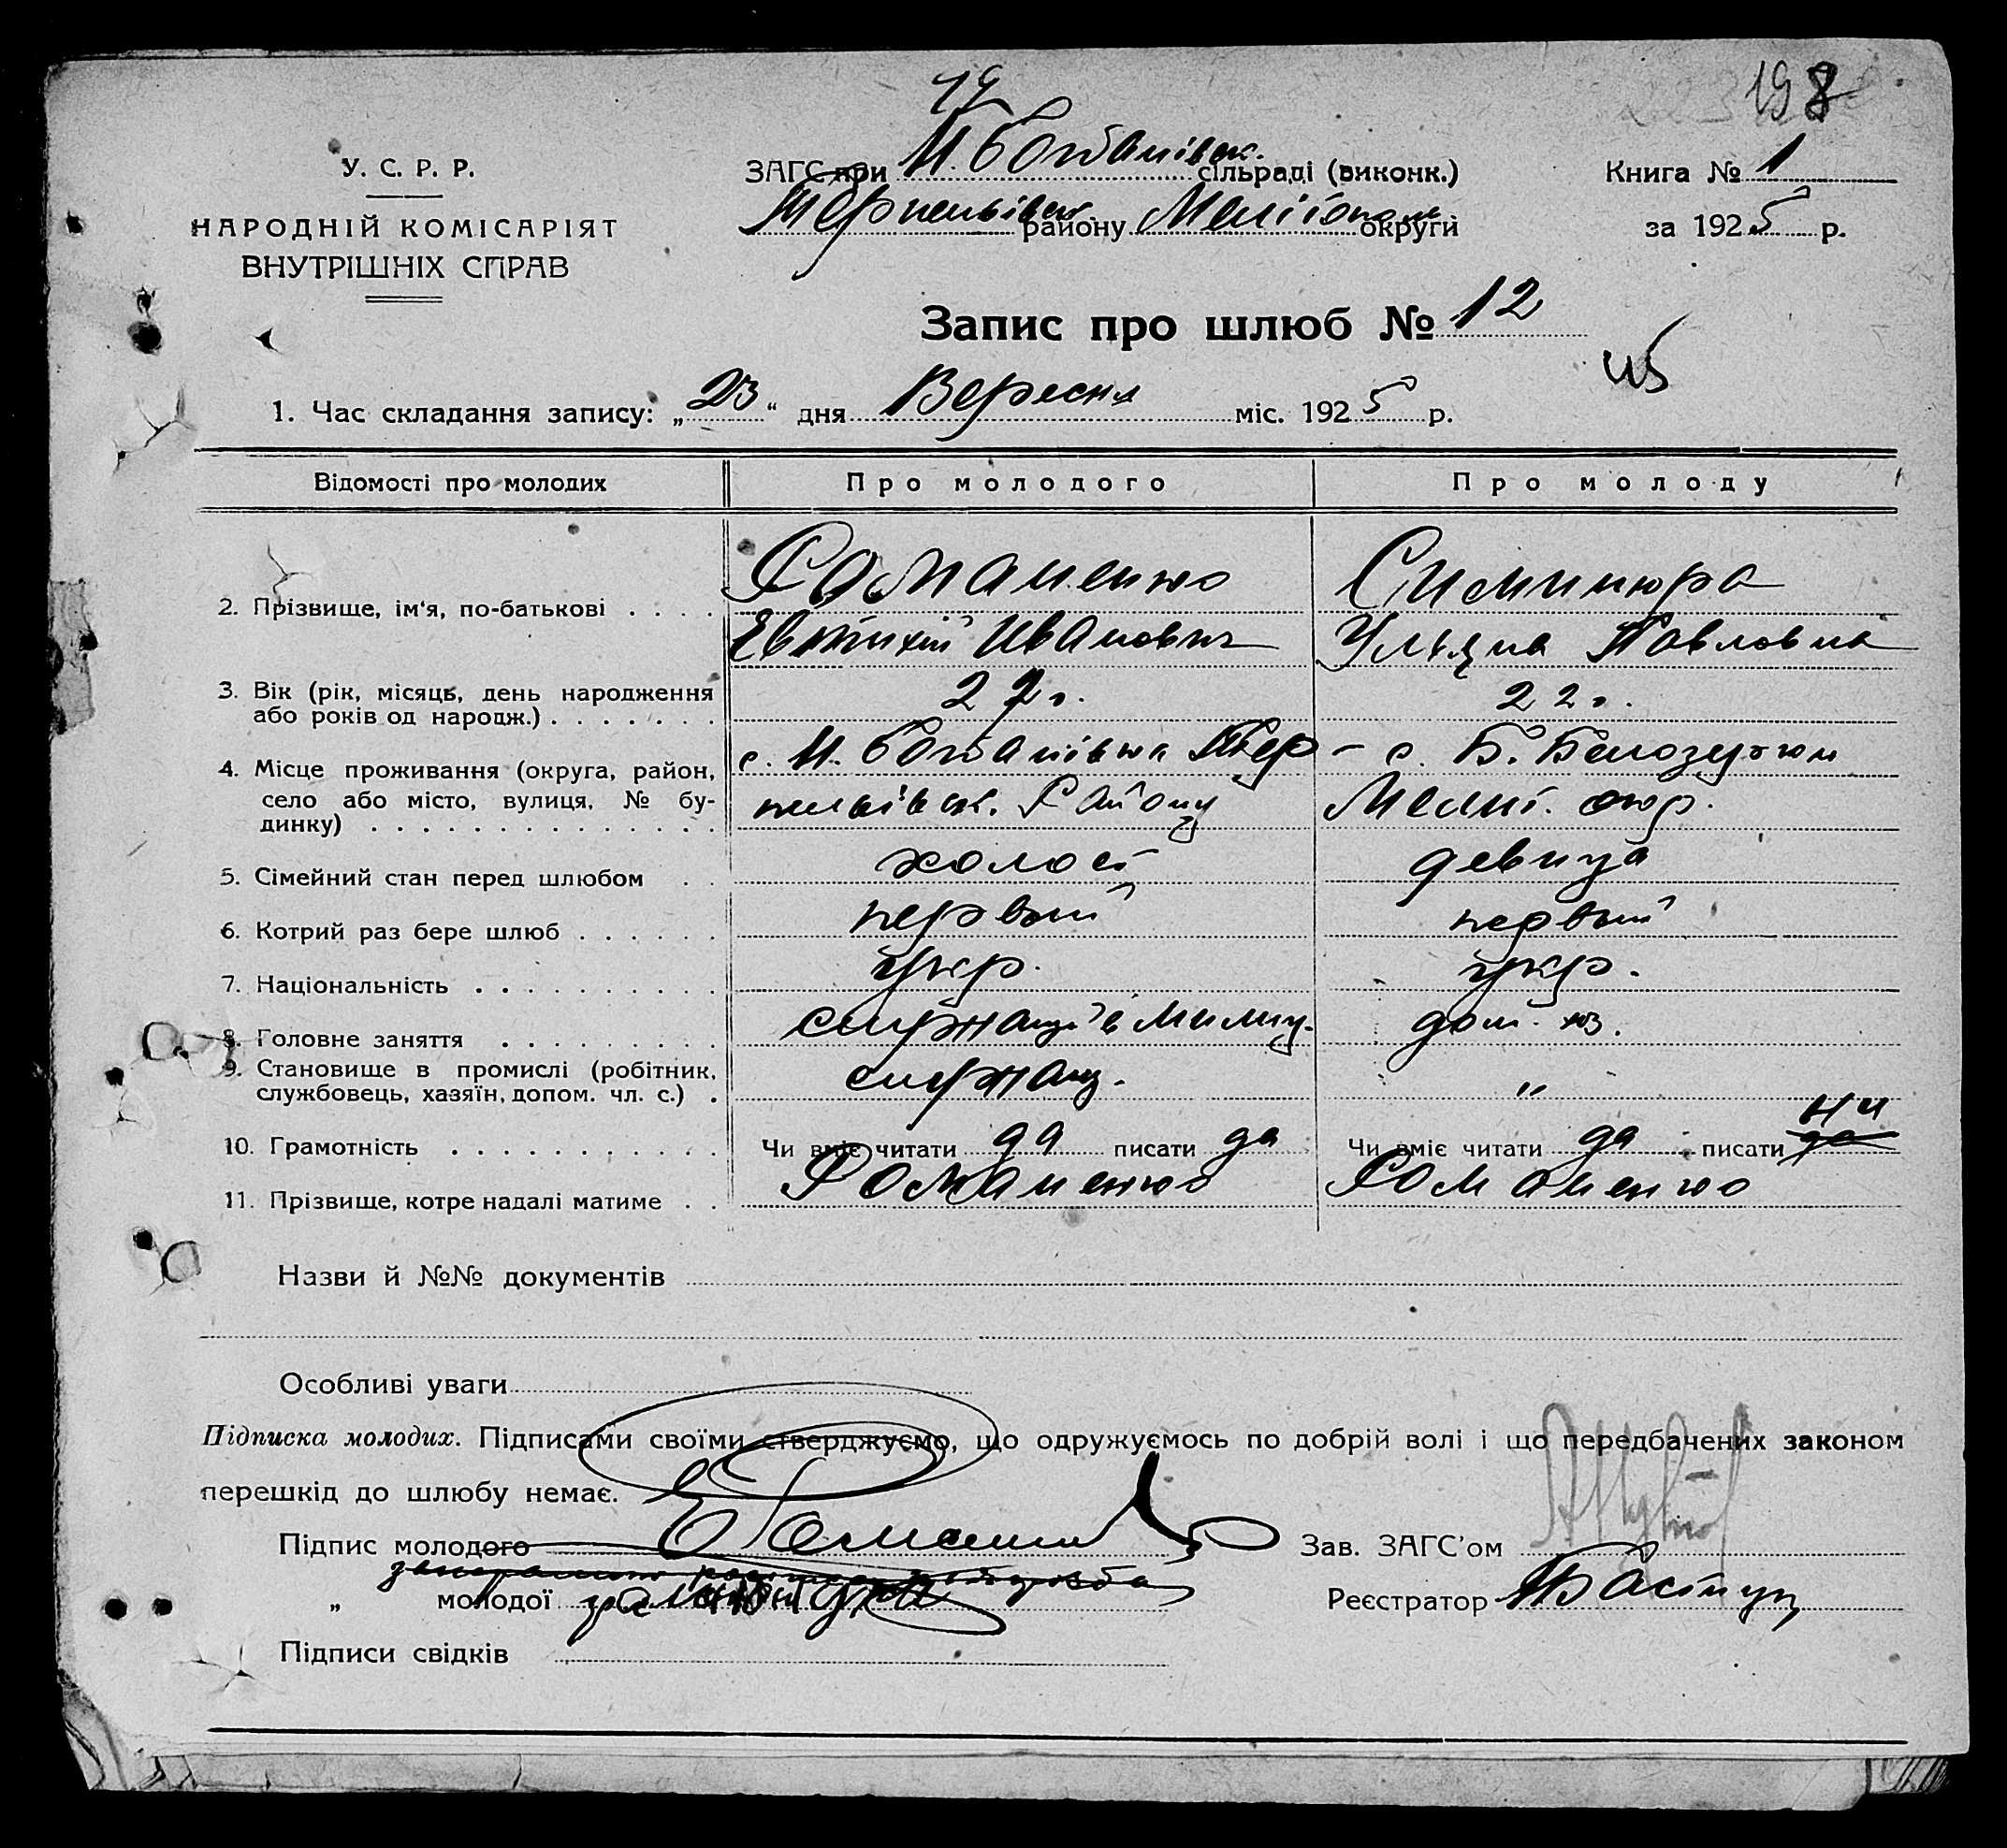 19
198
У. С. Р. Р.
НАРОДНІЙ КОМІСАРІЯТ
ВНУТРІШНІХ СПРАВ
ЗАГС при Н. Богданівск. сільраді (виконк.)
Терпеньівск. району Меліт округи
Книга № 1
за 1925 р.
Запис про шлюб № 12
1. Час складання запису: „23“ дня Вересня міс. 1925 р.
Відомості про молодих Про молодого Про молоду
2. Прізвище, ім'я, по-батькові . . . . Романенко
Евтихій Иванович
Ульяна Павловна
3. Вік (рік, місяць, день народження
або років од народж.) . . . . . . . 27 г. 22 г.
4. Місце проживання (округа, район,
село або місто, вулиця, № бу-
динку) . . . . . . . . . . . . . .
с. Н. Богданівка Тер-
пеньівск. Району
с. Б. Белозерка
Мелит. окр.
5. Сімейний стан перед шлюбом . . холост девица
6. Котрий раз бере шлюб . . . . . . первый первый
7. Національність . . . . . . . . . . укр. укр.
8. Головне заняття . . . . . . . . . служащ. в Милиц. дом. хоз.
9. Становище в промислі (робітник,
службовець, хазяїн, допом. чл. с.) . служащ. "
10. Грамотність . . . . . . . . . . . Чи вміє читати да писати да Чи вміє читати да писати да ни
11. Прізвище, котре надалі матиме . . Романенко Романенко
Назви й №№ документів
Особливі уваги
Підписка молодих. Підписами своїми стверджуємо, що одружуємось по добрій волі і що передбачених законом
перешкід до шлюбу немає.
Підпис молодого Е Романенко
Зав. ЗАГС'ом
„ молодої
Реєстратор
Підписи свідків